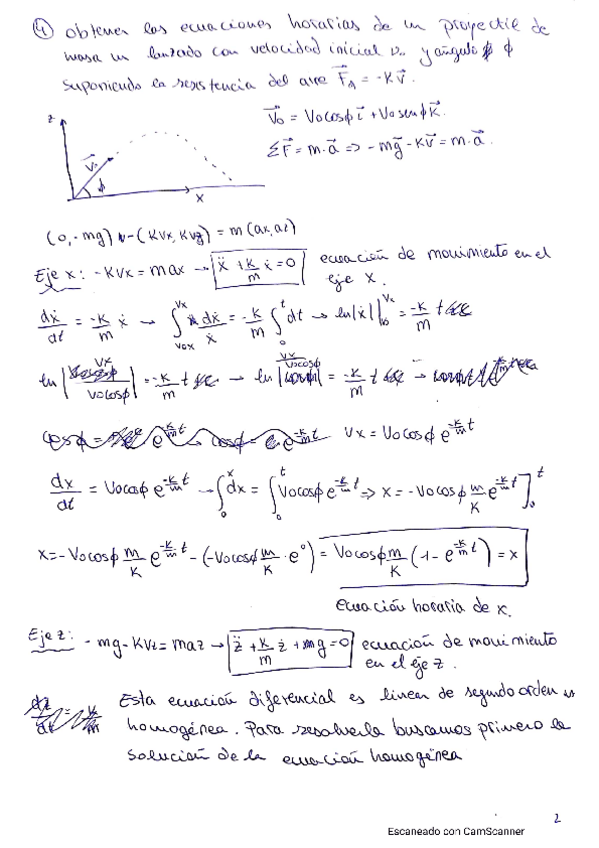 ④ obtener las ecuaciones horarias de un proyectil de
masa m lanzado con velocidad inicial v₀, y ángulo ϕ
suponiendo la resistencia del aire F⃗_A = -Kv⃗.
z
v⃗₀
ϕ
x
v⃗₀ = V₀cosϕ i⃗ + V₀senϕ k⃗.
ΣF⃗ = m·a⃗ => -mg⃗ - Kv⃗ = m·a⃗.
(0, -mg) - (KVx, KVz) = m(ax, az)
Eje x: -KVx = max → ẍ + K/m ẋ = 0 ecuación de movimiento en el
eje x.
dẋ/dt = -K/m ẋ → ∫_{V₀x}^{Vx} dẋ/ẋ = -K/m ∫_0^t dt → ln|ẋ| |^{Vx} = -K/m t
ln |Vx/V₀cosϕ| = -K/m t → ln |Vx/V₀cosϕ| = -K/m t →
Vx = V₀cosϕ e^{-K/m t}
dx/dt = V₀cosϕ e^{-K/m t} → ∫_0^x dx = ∫_0^t V₀cosϕ e^{-K/m t} => x = -V₀cosϕ m/K e^{-K/m t}]_0^t
x = -V₀cosϕ m/K e^{-K/m t} - (-V₀cosϕ m/K · e⁰) = V₀cosϕ m/K (1 - e^{-K/m t}) = x
Ecuación horaria de x.
Eje z: -mg - KVz = maz → z̈ + K/m ż + mg = 0 ecuación de movimiento
en el eje z.
Esta ecuación diferencial es linear de segundo orden
homogénea. Para resolverla buscamos primero la
solución de la ecuación homogénea
2
Escaneado con CamScanner